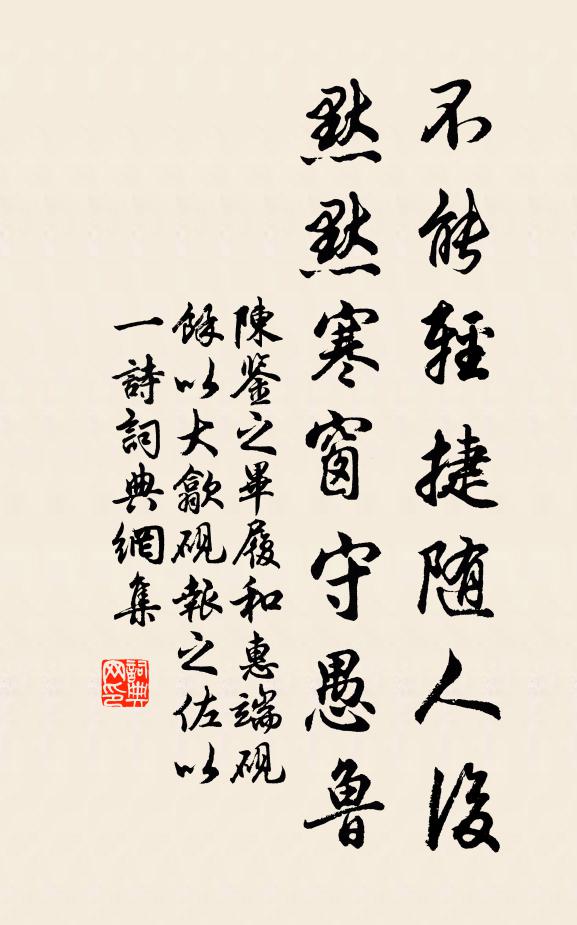 不能輕捷随人後
默默寒窗守愚魯
陳鉴之畢履和惠端硯
餘以大歙硯報之佐以
一詩詞典網集
詞典网印